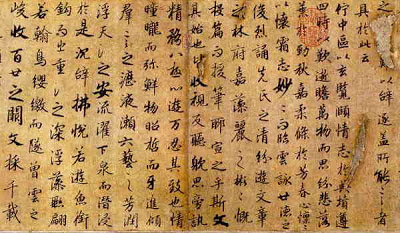 以辭逮蓋所能言之者
具於此云
佇中區以玄覽頤情志於典墳遵
四時以歎逝瞻萬物而思紛悲落
葉於勁秋嘉柔條於芳春心懍〻
以懷霜志眇〻而臨雲詠世德之
俊烈誦先民之清芬遊文章
之林府嘉藻麗之彬〻慨
投篇而援筆聊宣之乎斯文
其始也皆收視反聽耽思傍訊
精騖八極心遊萬仞其致也情
曈曨而彌鮮物昭晢而互進傾
群言之瀝液漱六藝之芳潤
浮天淵之安流濯下泉而潛浸
於是沈辭怫悅若遊魚銜
鉤而出重淵之深浮藻聯翩
若翰鳥纓繳而墜曾雲之
峻收百世之闕文採千載